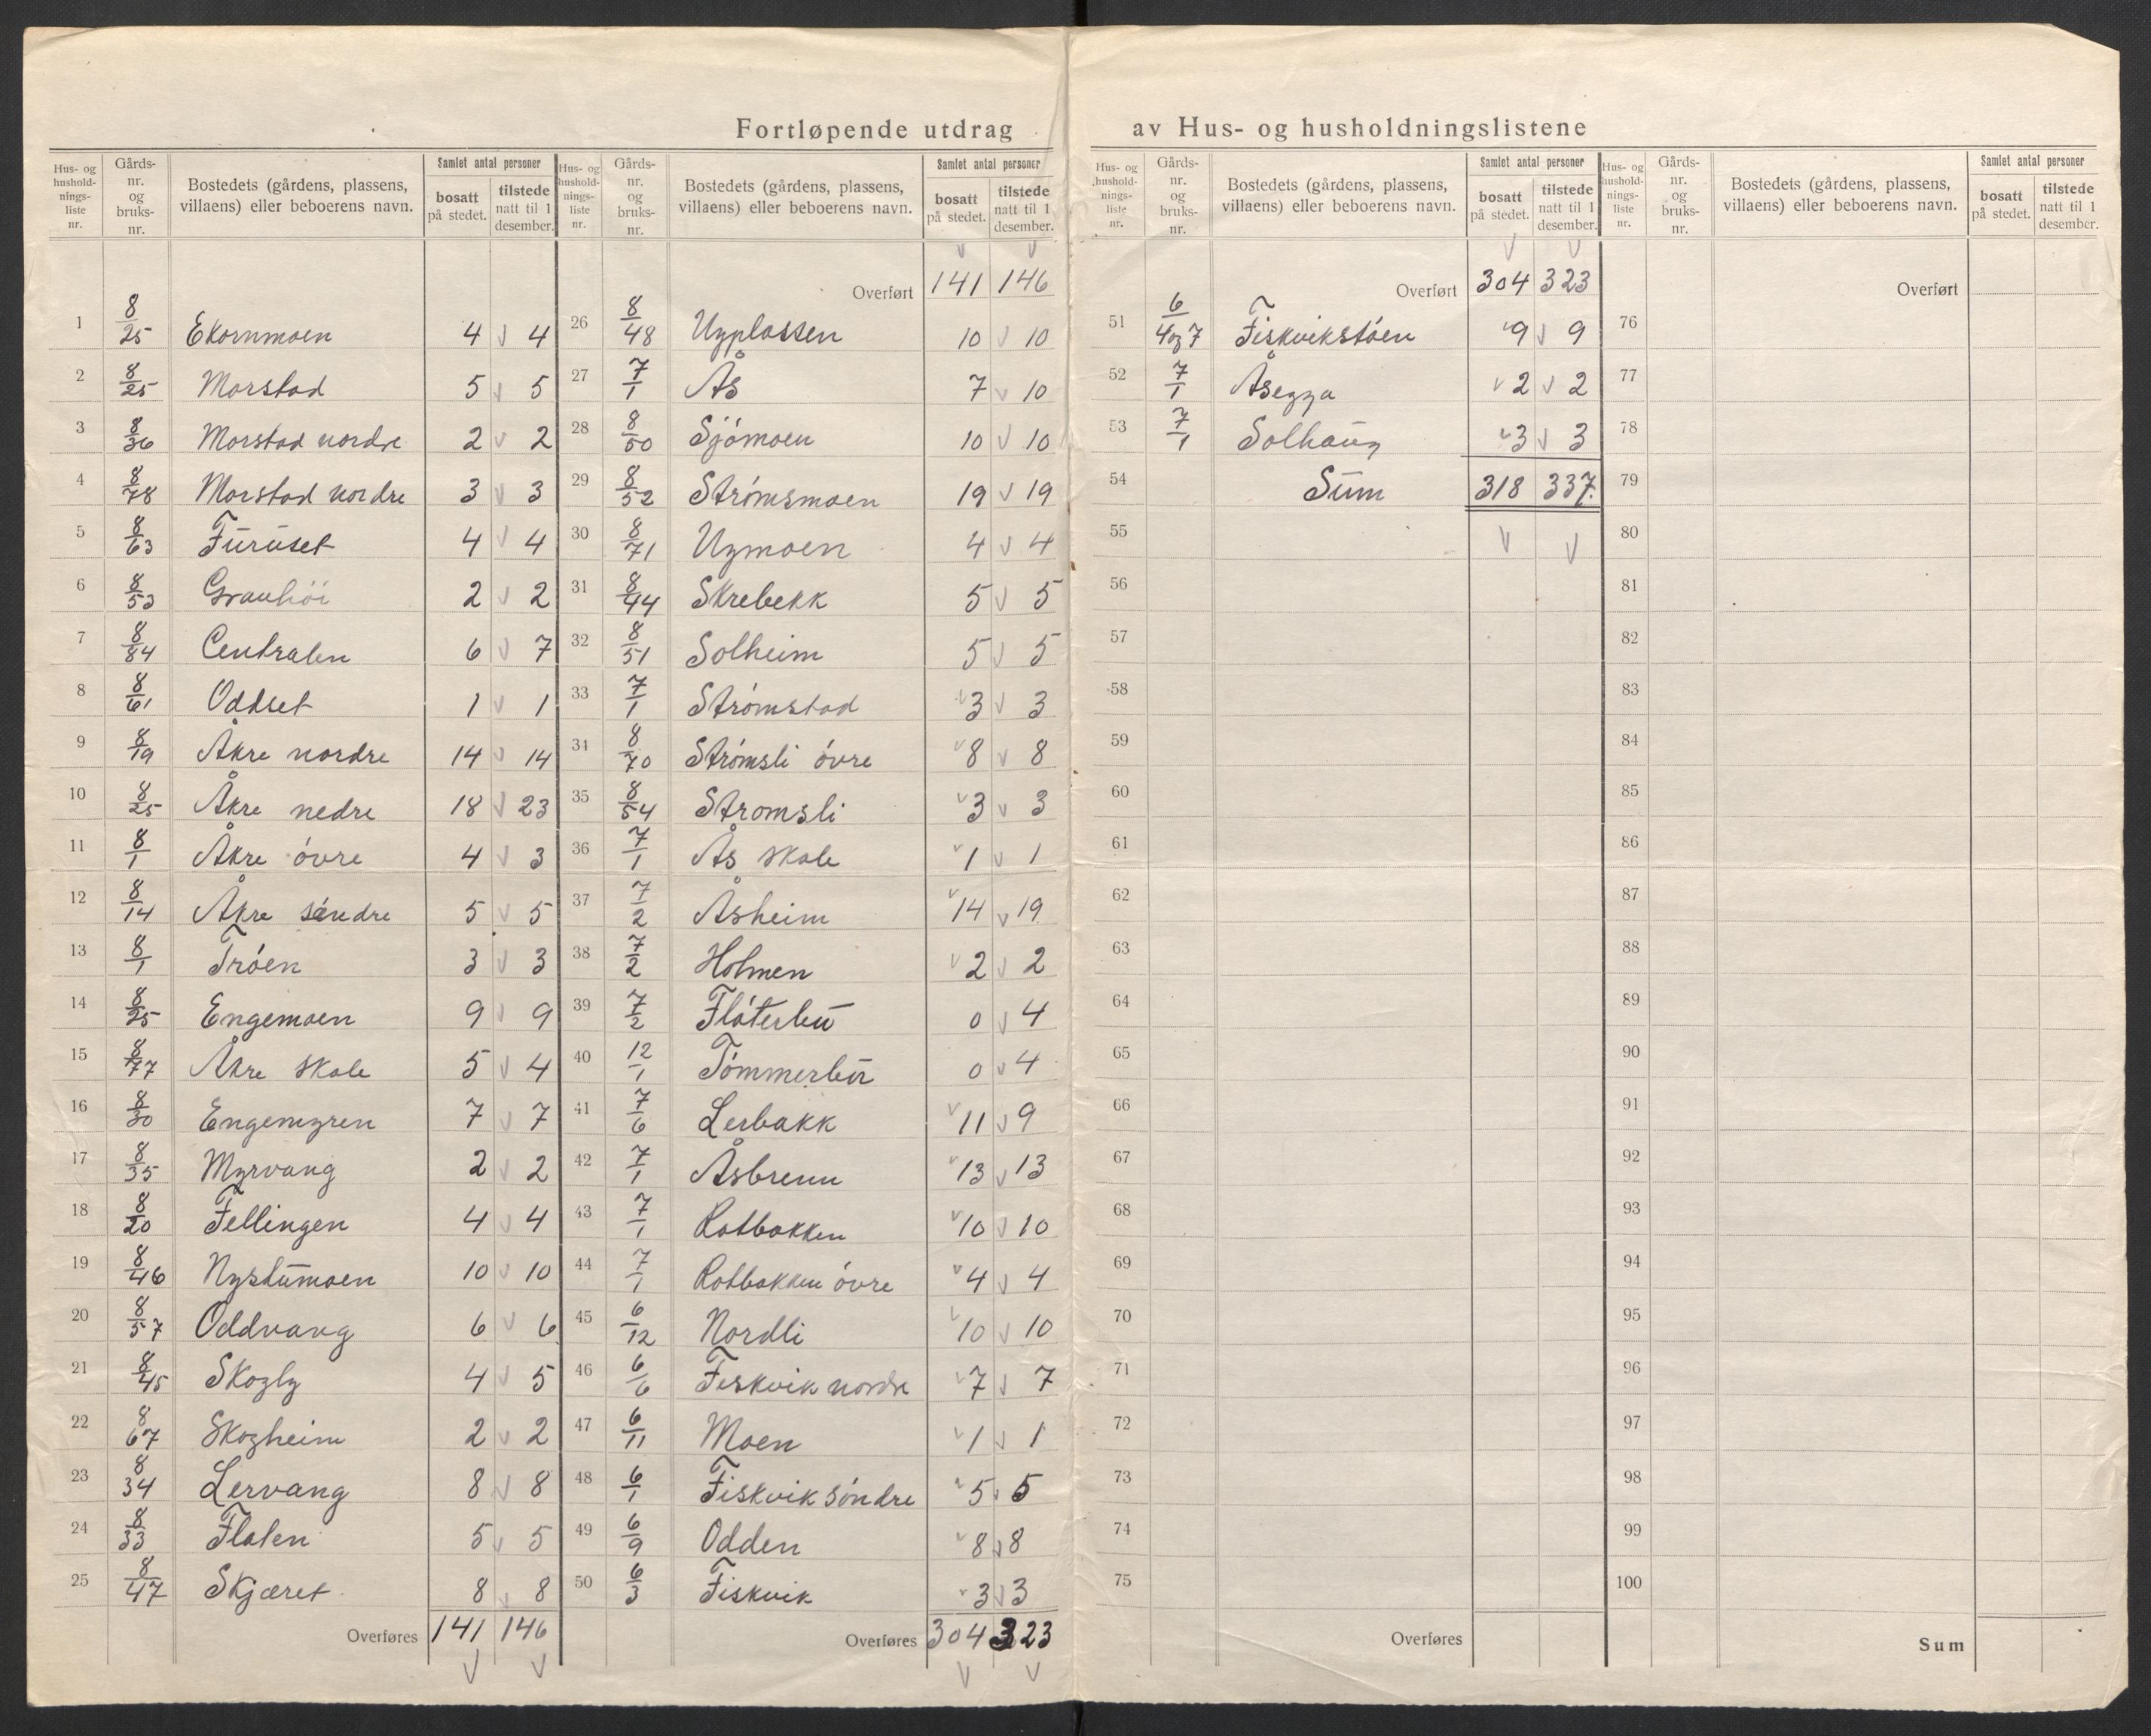 Fortløpende utdrag av Hus- og husholdningslistene
Hus- og husholdnings-liste nr. | Gårds-nr. og bruks-nr. | Bostedets (gårdens, plassens, villaens) eller beboerens navn. | Samlet antal personer bosatt på stedet. | tilstede natt til 1 desember.
1 8/25 Ekornmoen 4 v 4
2 8/25 Morstad 5 v 5
3 8/36 Morstad nordre 2 v 2
4 8/78 Morstad nordre 3 v 3
5 8/63 Furuset 4 v 4
6 8/53 Granhöi 2 v 2
7 8/84 Centralen 6 v 7
8 8/61 Oddset 1 v 1
9 8/19 Åkre nordre 14 v 14
10 8/25 Åkre nedre 18 v 23
11 8/1 Åkre óvre 4 v 3
12 8/14 Åkre søndre 5 v 5
13 8/1 Tróen 3 v 3
14 8/25 Engemoen 9 v 9
15 8/77 Åkre skole 5 v 4
16 8/30 Engemyren 7 v 7
17 8/35 Myrvang 2 v 2
18 8/20 Fellingen 4 v 4
19 8/46 Nystumoen 10 v 10
20 8/57 Oddvang 6 v 6
21 8/45 Skogly 4 v 5
22 8/67 Skogheim 2 v 2
23 8/34 Lervang 8 v 8
24 8/33 Floten 5 v 5
25 8/47 Skjæret 8 v 8
Overføres 141 146
v v
Hus- og husholdnings-liste nr. | Gårds-nr. og bruks-nr. | Bostedets (gårdens, plassens, villaens) eller beboerens navn. | Samlet antal personer bosatt på stedet. | tilstede natt til 1 desember.
v v
Overført 141 146
26 8/48 Ugplassen 10 v 10
27 7/1 Ås 7 v 10
28 8/50 Sjómoen 10 v 10
29 8/52 Strómsmoen 19 v 19
30 8/71 Ugmoen 4 v 4
31 8/44 Skrebekk 5 v 5
32 8/51 Solheim 5 v 5
33 7/1 Strómstad v 3 v 3
34 8/70 Strómsli óvre v 8 v 8
35 8/54 Stromsli v 3 v 3
36 7/1 Ås skole v 1 v 1
37 7/2 Åsheim v 14 v 19
38 7/2 Holmen v 2 v 2
39 7/2 Flóterbu 0 v 4
40 12/1 Tómmerbu 0 v 4
41 7/6 Lerbakk v 11 v 9
42 7/1 Åsbrenn v 13 v 13
43 7/1 Rotbakken v 10 v 10
44 7/1 Rotbakken óvre v 4 v 4
45 6/12 Nordli v 10 v 10
46 6/6 Fiskvik nordre v 7 v 7
47 6/11 Moen v 1 v 1
48 6/1 Fiskvik søndre v 5 v 5
49 6/9 Odden v 8 v 8
50 6/3 Fiskvik v 3 v 3
Overføres 304 323
v v
Hus- og husholdnings-liste nr. | Gårds-nr. og bruks-nr. | Bostedets (gårdens, plassens, villaens) eller beboerens navn. | Samlet antal personer bosatt på stedet. | tilstede natt til 1 desember.
v v
Overført 304 323
51 6/4og7 Fiskvikstóen v 9 v 9
52 7/1 Åsegga v 2 v 2
53 7/1 Solhaug v 3 v 3
54 Sum 318 337.
55 v v
56
57
58
59
60
61
62
63
64
65
66
67
68
69
70
71
72
73
74
75
Overføres
Hus- og husholdnings-liste nr. | Gårds-nr. og bruks-nr. | Bostedets (gårdens, plassens, villaens) eller beboerens navn. | Samlet antal personer bosatt på stedet. | tilstede natt til 1 desember.
Overført
76
77
78
79
80
81
82
83
84
85
86
87
88
89
90
91
92
93
94
95
96
97
98
99
100
Sum